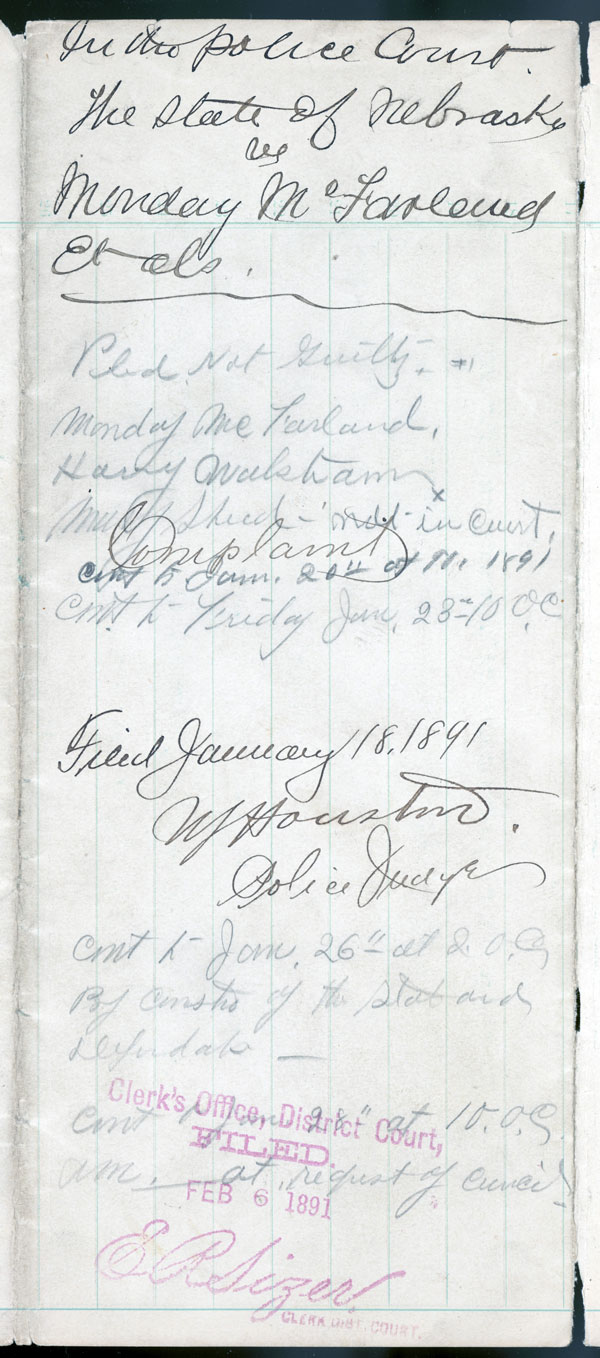 In the Police Court.
The State of Nebraska
vs
Monday McFarland
Et als.
Pled. Not Guilty.
Monday McFarland,
Harry Walstram
Shed - not in court.
Complaint
cont to Jan. 20" at M. 1891
cont to Friday Jan. 23 - 10 O.C.
Filed January 18, 1891
W J Houston.
Police Judge
cont to Jan. 26" at 2. O.C.
By consent of the State and
Defendants —
Clerk's Office, District Court,
cont to Jan 28" at 10. O.C.
FILED.
am. — at request of
FEB 6 1891
E R Sizer
CLERK DIST. COURT.